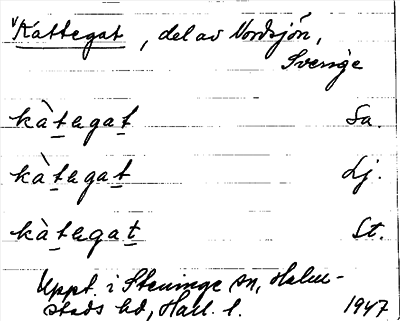 Kattegat, del av Nordsjön,
Sverige
kàtegat Sa.
kàtegat Lj.
kàtegat St.
Uppt. i Steninge sn, Halm-
stads hd, Hall. l. 1947